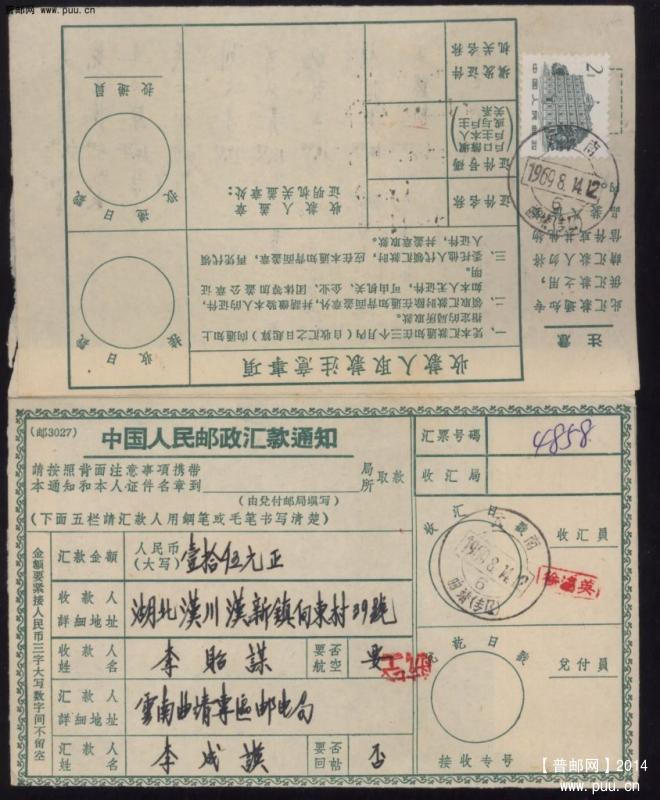 普邮网
www.puu.cn
收款人取款注意事项
一、凭本汇款通知在三个月内(自收汇之日起算)向通知上
指定的局所取款。
领取汇款时除在通知背面盖章外,并請繳驗本人的证件,
如本人无证件,可由机关、企业、团体等加盖公章证
明。
三、委托他人代領汇款时,应在本通知背面盖章,再凭代領
人证件,并盖章取款。
注意
此汇款通知专
供汇款之用,
請汇款人勿将
证件名称
证件号碼
填发证件
机关名称
收款人盖章
证明机关盖章处:
投递員
投递日戳
接收日戳
2
中国人民邮政
1969.8.14.12
6
(邮3027)
中国人民邮政汇款通知
請按照背面注意事項携带
本通知和本人证件名章到
局
所
取款
(由兑付邮局填写)
(下面五栏請汇款人用鋼笔或毛笔书写清楚)
金額要紧接人民币三字大写数字間不留空
汇款金額
人民币
(大写)
壹拾伍元正
收款人
詳細地址
湖北漢川漢新鎮向東村39號
收款人
姓名
李貽謀
要否
航空
要
航空
汇款人
詳細地址
雲南曲靖專區邮电局
汇款人
姓名
李成謨
要否
回帖
否
汇票号碼
4858
收汇局
收汇日戳
收汇員
1969.8.14.12
6
兑付員
兑訖日戳
接收专号
【普邮网】2014
www.puu.cn